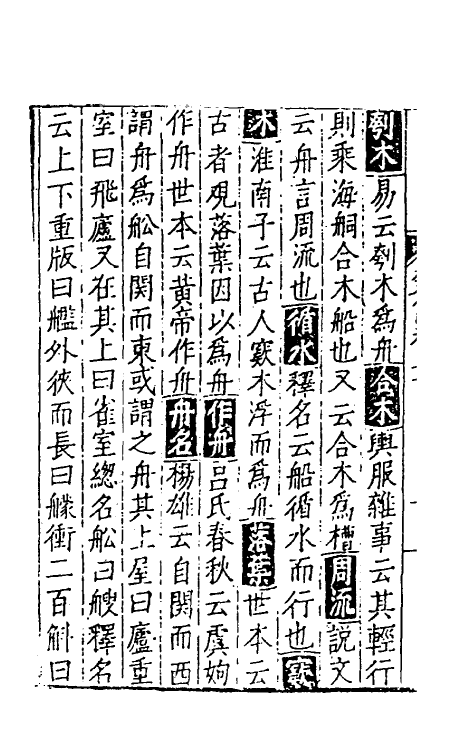 刳木易云刳木為舟合木輿服雜事云其輕行
則乘海舸合木船也又云合木為樐周流説文
云舟言周流也循水釋名云船循水而行也窾
木淮南子云古人窾木浮而為舟落葉世本云
古者觀落葉因以為舟作舟吕氏春秋云虞姁
作舟世本云黄帝作舟舟名楊雄云自関而西
謂舟為舩自関而東或謂之舟其上屋曰廬重
室曰飛廬又在其上曰雀室總名舩曰艘釋名
云上下重版曰艦外狹而長曰艨衝二百斛曰